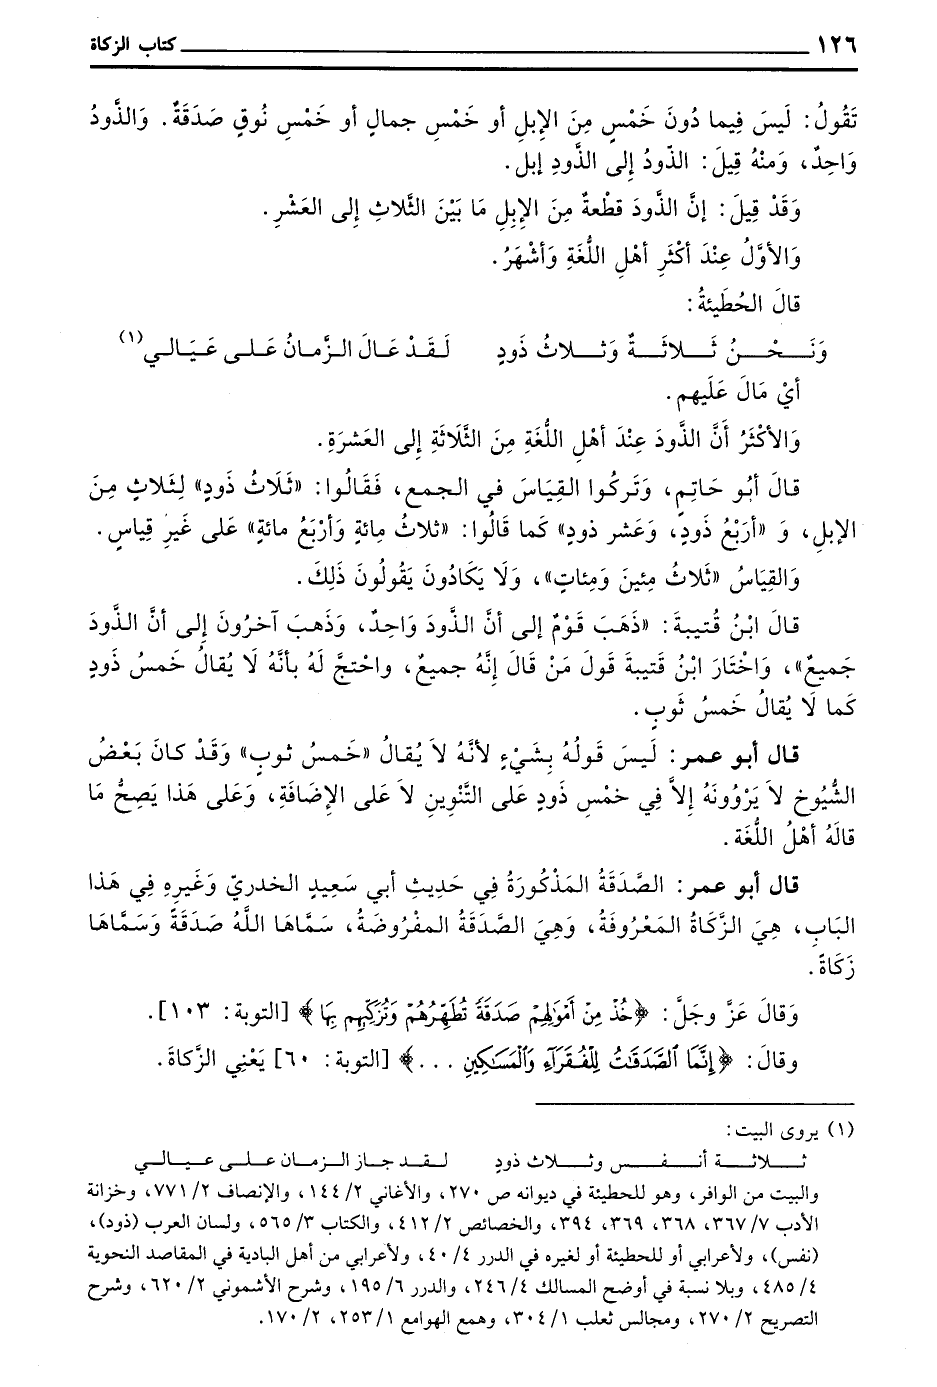 ١٢٦ كتاب الزكاة
تَقُولُ: لَيسَ فِيما دُونَ خَمْسٍ مِنَ الإِبلِ أو خَمْسِ جمالٍ أو خَمْسِ نُوقٍ صَدَقَةٌ. وَالذَّودُ
وَاحِدٌ، وَمنْهُ قِيلَ: الذّودُ إلى الذَّودِ إبل.
وَقَدْ قِيلَ: إنَّ الذَّودَ قطْعةٌ مِنَ الإِبلِ مَا بَيْنَ الثَّلاثِ إلى العَشْرِ.
وَالأوَّلُ عِنْدَ أكْثَرِ أهْلِ اللُّغَةِ وَأشْهَرُ.
قالَ الحُطَيئةُ:
وَنَحْنُ ثَلاثَةٌ وَثلاثُ ذَودٍ لَقَدْ عَالَ الزَّمانُ عَلى عَيَالي(١)
أيْ مَالَ عَلَيهم.
وَالأكْثَرُ أنَّ الذَّودَ عِنْدَ أهْلِ اللُّغَةِ مِنَ الثَّلَاثَةِ إلى العَشرَةِ.
قالَ أبُو حَاتِم، وَتَركُوا القِيَاسَ في الجمع، فَقَالُوا: «ثَلَاثُ ذَودٍ» لِثَلاثٍ مِنَ
الإبلِ، وَ «أرَبْعُ ذَودٍ، وَعَشر ذودٍ» كَما قَالُوا: «ثلاثُ مِائةٍ وَأرْبَعُ مائةٍ» عَلى غَيرِ قِياسٍ.
وَالقِيَاسُ «ثَلاثُ مِئينَ وَمِئاتٍ»، وَلَا يَكَادُونَ يَقُولُونَ ذَلِكَ.
قالَ ابْنُ قُتيبةَ: «ذَهَبَ قَوْمٌ إلى أنَّ الذَّودَ وَاحِدٌ، وَذَهبَ آخرُونَ إِلى أنَّ الذَّودَ
جَميعٌ»، وَاخْتَارَ ابْنُ قَتيبةَ قَولَ مَنْ قَالَ إنَّهُ جميعٌ، واحْتجَّ لَهُ بأنَّهُ لَا يُقالُ خَمسُ ذَودٍ
كَما لَا يُقالُ خَمسُ ثَوبٍ.
قال أبو عمر: لَيسَ قَولُهُ بِشَيْءٍ لأنَّهُ لاَ يُقالُ «خَمسُ ثوبٍ» وَقَدْ كانَ بَعْضُ
الشُّيُوخِ لاَ يَرْوُونَهُ إلاَّ فِي خمْسٍ ذَودٍ عَلى التَّنْوِينِ لاَ عَلى الإضَافَةِ، وَعَلى هَذا يَصِحُّ مَا
قالَهُ أهْلُ اللُّغَة.
قال أبو عمر: الصَّدَقَةُ المَذْكُورَةُ فِي حَدِيثِ أبي سَعِيدٍ الخدريّ وَغَيرِهِ فِي هَذا
البَابِ، هِيَ الزَّكاةُ المَعْرُوفَةُ، وَهِيَ الصَّدَقَةُ المفْرُوضَةُ، سَمَّاها اللَّهُ صَدَقَةً وَسَمَّاهَا
زَكَاةً.
وَقالَ عَزَّ وجَلَّ: ﴿خُذْ مِنْ أَمْوَٰلِهِمْ صَدَقَةً تُطَهِّرُهُمْ وَتُزَكِّيهِم بِهَا﴾ [التوبة: ١٠٣].
وقالَ: ﴿إِنَّمَا ٱلصَّدَقَٰتُ لِلْفُقَرَآءِ وَٱلْمَسَٰكِينِ ...﴾ [التوبة: ٦٠] يَعْنِي الزَّكاةَ.
(١) يروى البيت:
ثلاثة أنفس وثلاث ذود لقد جاز الزمان على عيالي
والبيت من الوافر، وهو للحطيئة في ديوانه ص ٢٧٠، والأغاني ٢/ ١٤٤، والإنصاف ٢/ ٧٧١، وخزانة
الأدب ٧/ ٣٦٧، ٣٦٨، ٣٦٩، ٣٩٤، والخصائص ٢/ ٤١٢، والكتاب ٣/ ٥٦٥، ولسان العرب (ذود)،
(نفس)، ولأعرابي أو للحطيئة أو لغيره في الدرر ٤/ ٤٠، ولأعرابي من أهل البادية في المقاصد النحوية
٤/ ٤٨٥، وبلا نسبة في أوضح المسالك ٤/ ٢٤٦، والدرر ٦/ ١٩٥، وشرح الأشموني ٢/ ٦٢٠، وشرح
التصريح ٢/ ٢٧٠، ومجالس ثعلب ١/ ٣٠٤، وهمع الهوامع ١/ ٢٥٣، ٢/ ١٧٠.